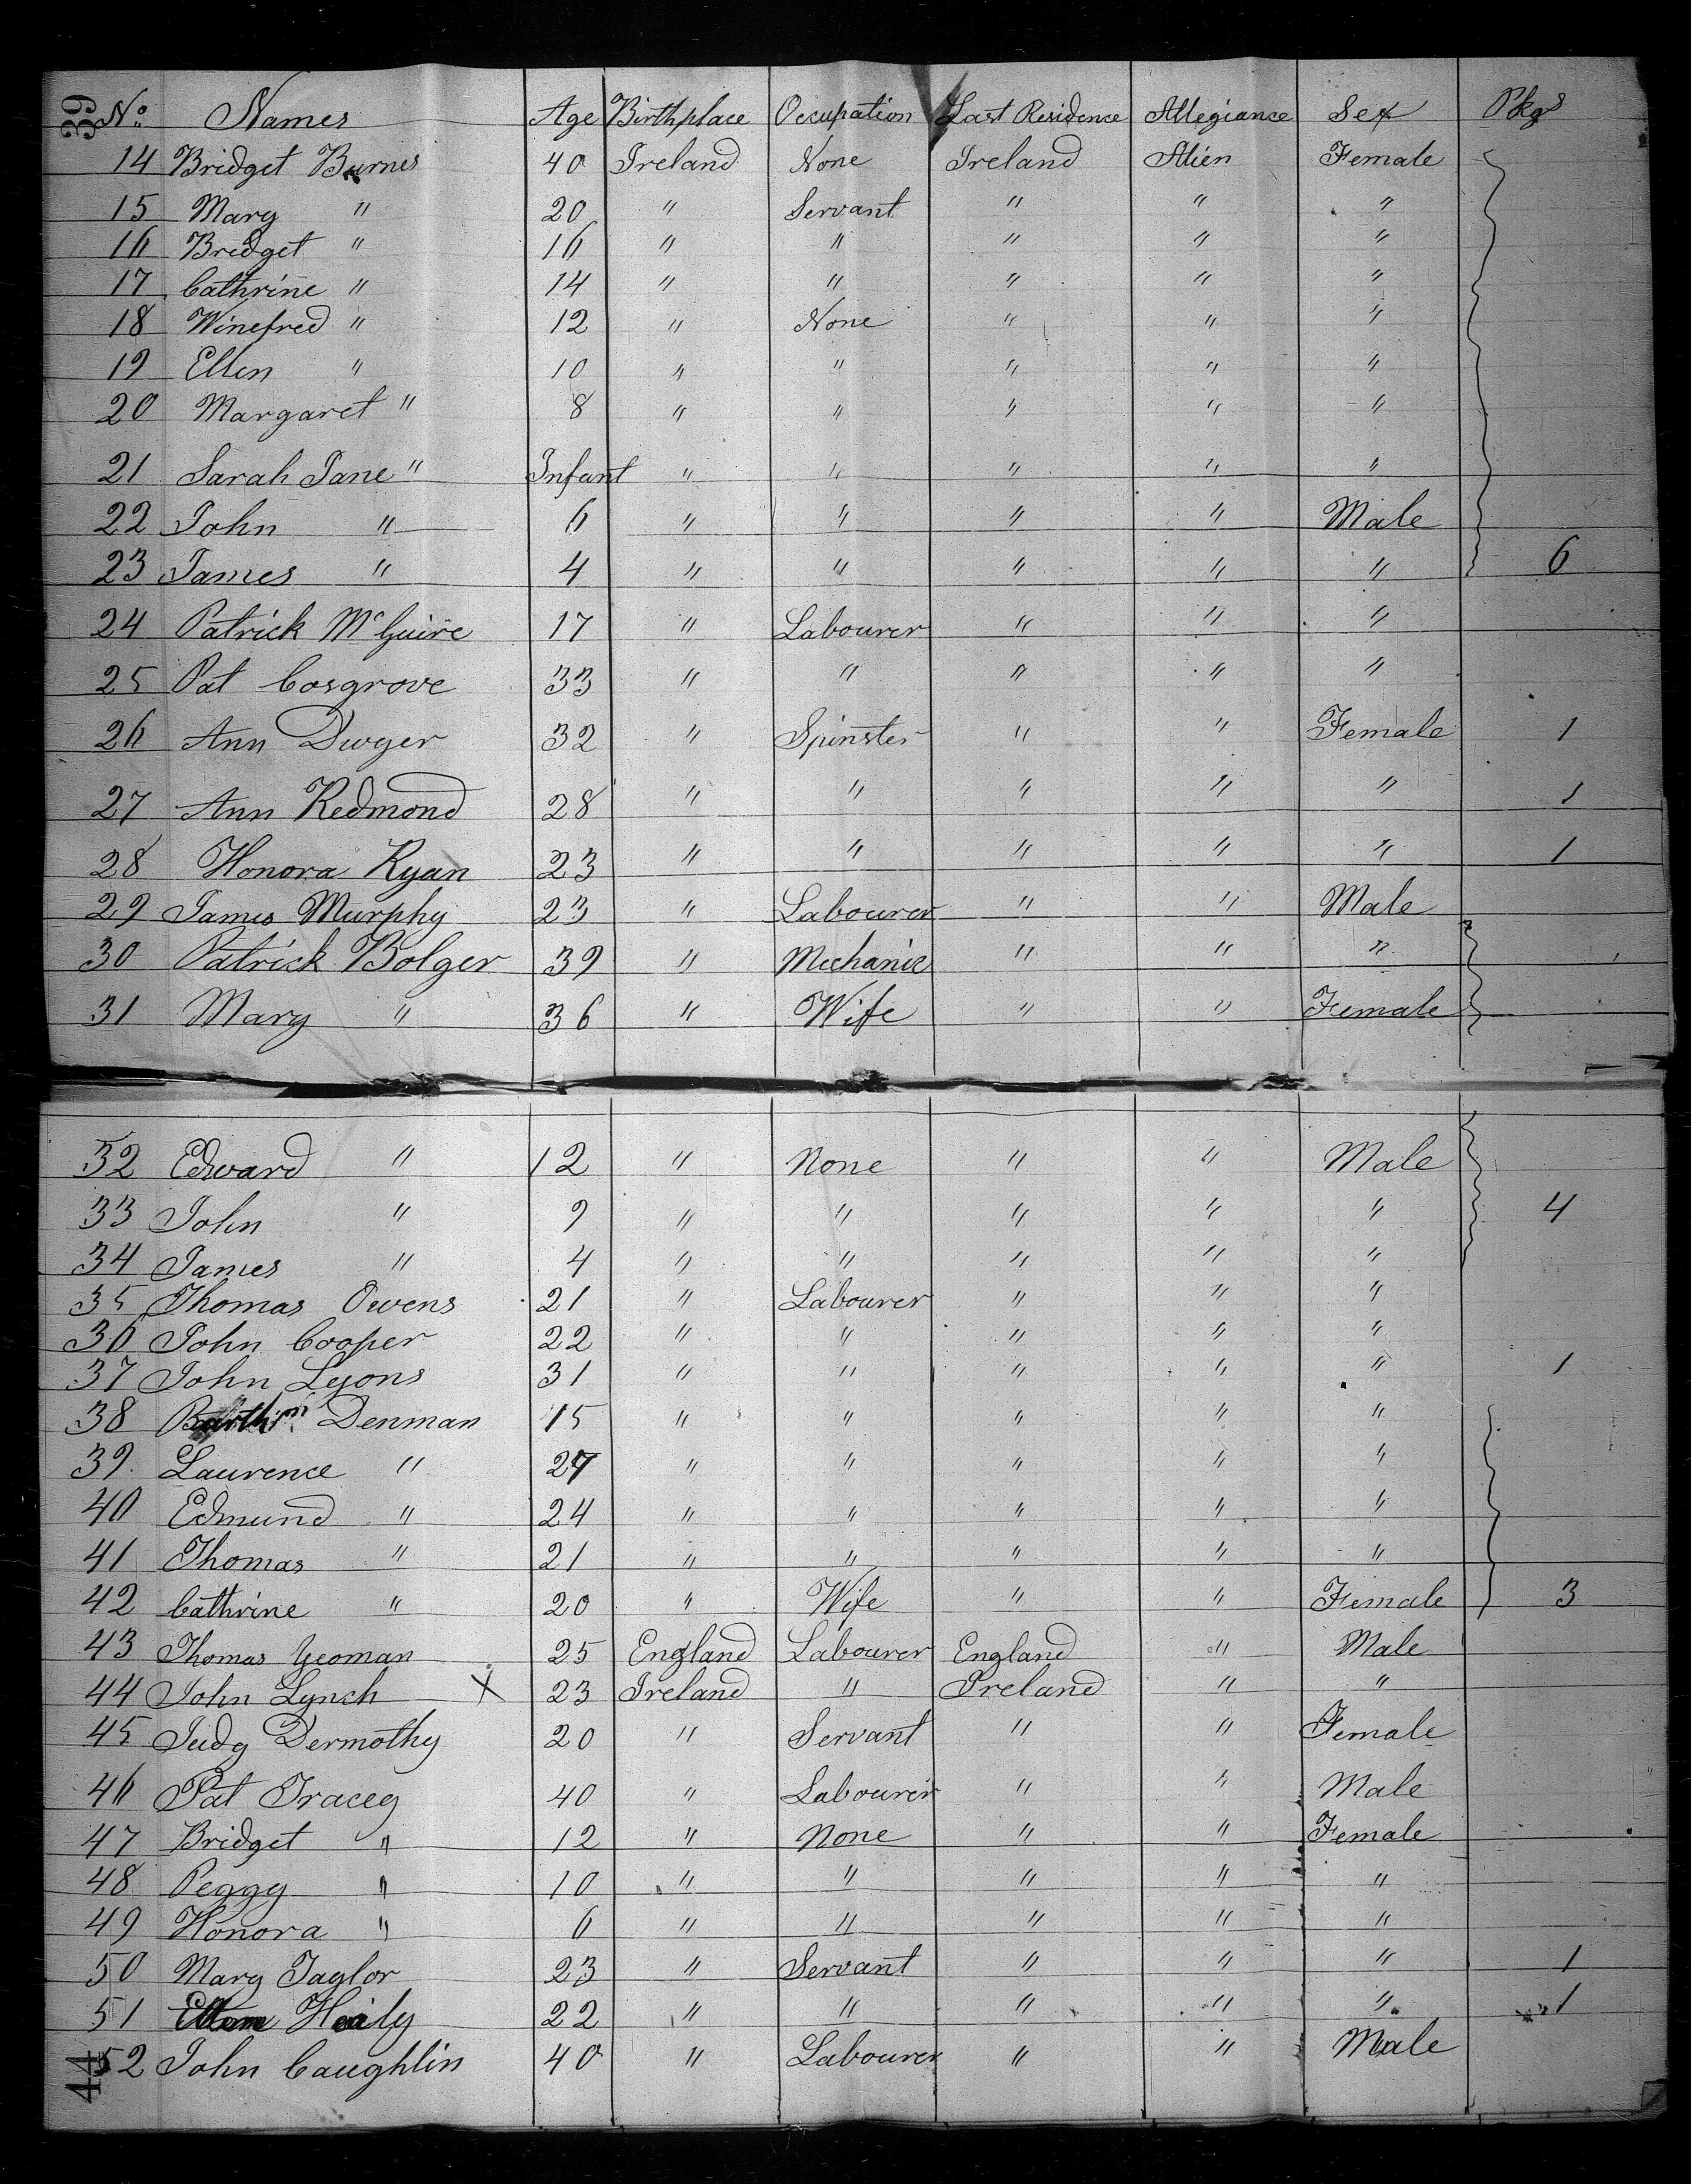 39
No. Names Age Birthplace Occupation Last Residence Allegiance Sex Pkgs
14 Bridget Burnes 40 Ireland None Ireland Alien Female
15 Mary " 20 " Servant " " "
16 Bridget " 16 " " " " "
17 Cathrine " 14 " " " " "
18 Winefred " 12 " None " " "
19 Ellen " 10 " " " " "
20 Margaret " 8 " " " " "
21 Sarah Jane " Infant " " " " "
22 John " 6 " " " " Male
23 James " 4 " " " " " 6
24 Patrick McGuire 17 " Labourer " " "
25 Pat Cosgrove 33 " " " " "
26 Ann Dwyer 32 " Spinster " " Female 1
27 Ann Redmond 28 " " " " " 1
28 Honora Ryan 23 " " " " " 1
29 James Murphy 23 " Labourer " " Male
30 Patrick Bolger 39 " Mechanic " " "
31 Mary " 36 " Wife " " Female
32 Edward " 12 " None " " Male
33 John " 9 " " " " " 4
34 James " 4 " " " " "
35 Thomas Owens 21 " Labourer " " "
36 John Cooper 22 " " " " "
37 John Lyons 31 " " " " " 1
38 Denman 15 " " " " "
39 Laurence " 27 " " " " "
40 Edmund " 24 " " " " "
41 Thomas " 21 " " " " "
42 Cathrine " 20 " Wife " " Female 3
43 Thomas Yeoman 25 England Labourer England " Male
44 John Lynch X 23 Ireland " Ireland " "
45 Judy Dermothy 20 " Servant " " Female
46 Pat Tracey 40 " Labourer " " Male
47 Bridget " 12 " None " " Female
48 Peggy " 10 " " " " "
49 Honora " 6 " " " " "
50 Mary Taylor 23 " Servant " " " 1
51 Ellen Haily 22 " " " " " 1
52 John Caughlin 40 " Labourer " " Male
44